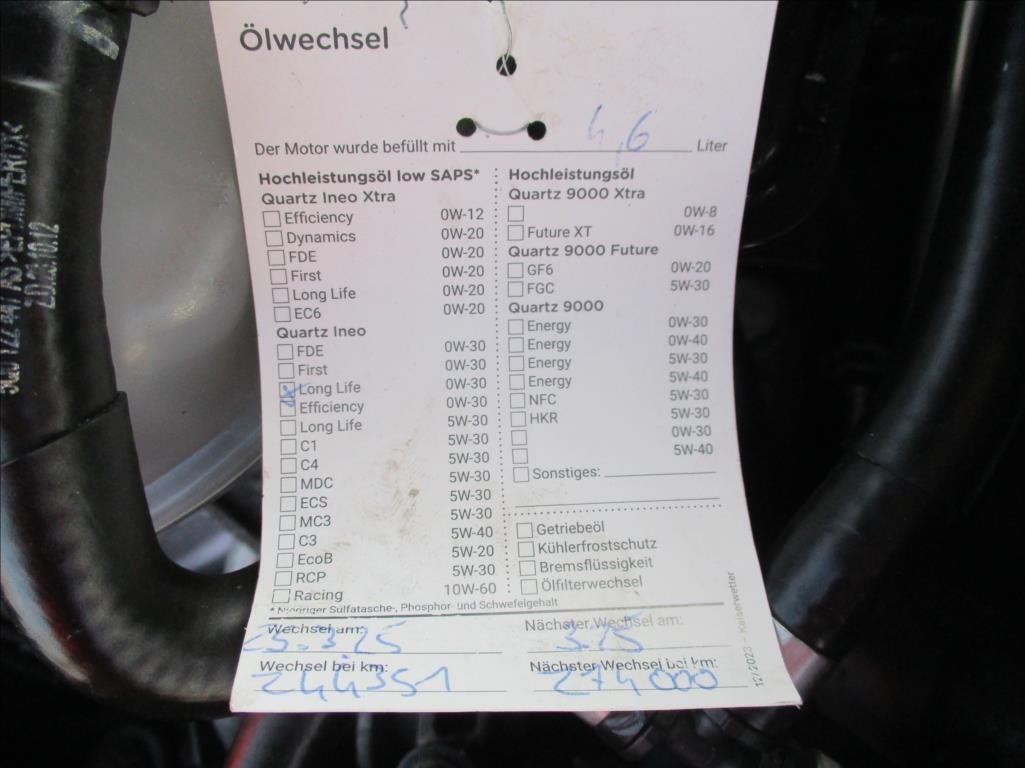 Ölwechsel
Der Motor wurde befüllt mit 4,6 Liter
Hochleistungsöl low SAPS*
Quartz Ineo Xtra
Efficiency 0W-12
Dynamics 0W-20
FDE 0W-20
First 0W-20
Long Life 0W-20
EC6 0W-20
Quartz Ineo
FDE 0W-30
First 0W-30
Long Life 0W-30
Efficiency 0W-30
Long Life 5W-30
C1 5W-30
C4 5W-30
MDC 5W-30
ECS 5W-30
MC3 5W-30
C3 5W-40
EcoB 5W-20
RCP 5W-30
Racing 10W-60
Hochleistungsöl
Quartz 9000 Xtra
0W-8
Future XT 0W-16
Quartz 9000 Future
GF6 0W-20
FGC 5W-30
Quartz 9000
Energy 0W-30
Energy 0W-40
Energy 5W-30
Energy 5W-40
NFC 5W-30
HKR 5W-30
0W-30
5W-40
Sonstiges:
Getriebeöl
Kühlerfrostschutz
Bremsflüssigkeit
Ölfilterwechsel
* Niedriger Sulfatasche-, Phosphor- und Schwefelgehalt
Wechsel am: 25.3.25
Nächster Wechsel am:
Wechsel bei km: 244351
Nächster Wechsel bei km: 274000
12/2023 - Kaiserwetter
20.10.12